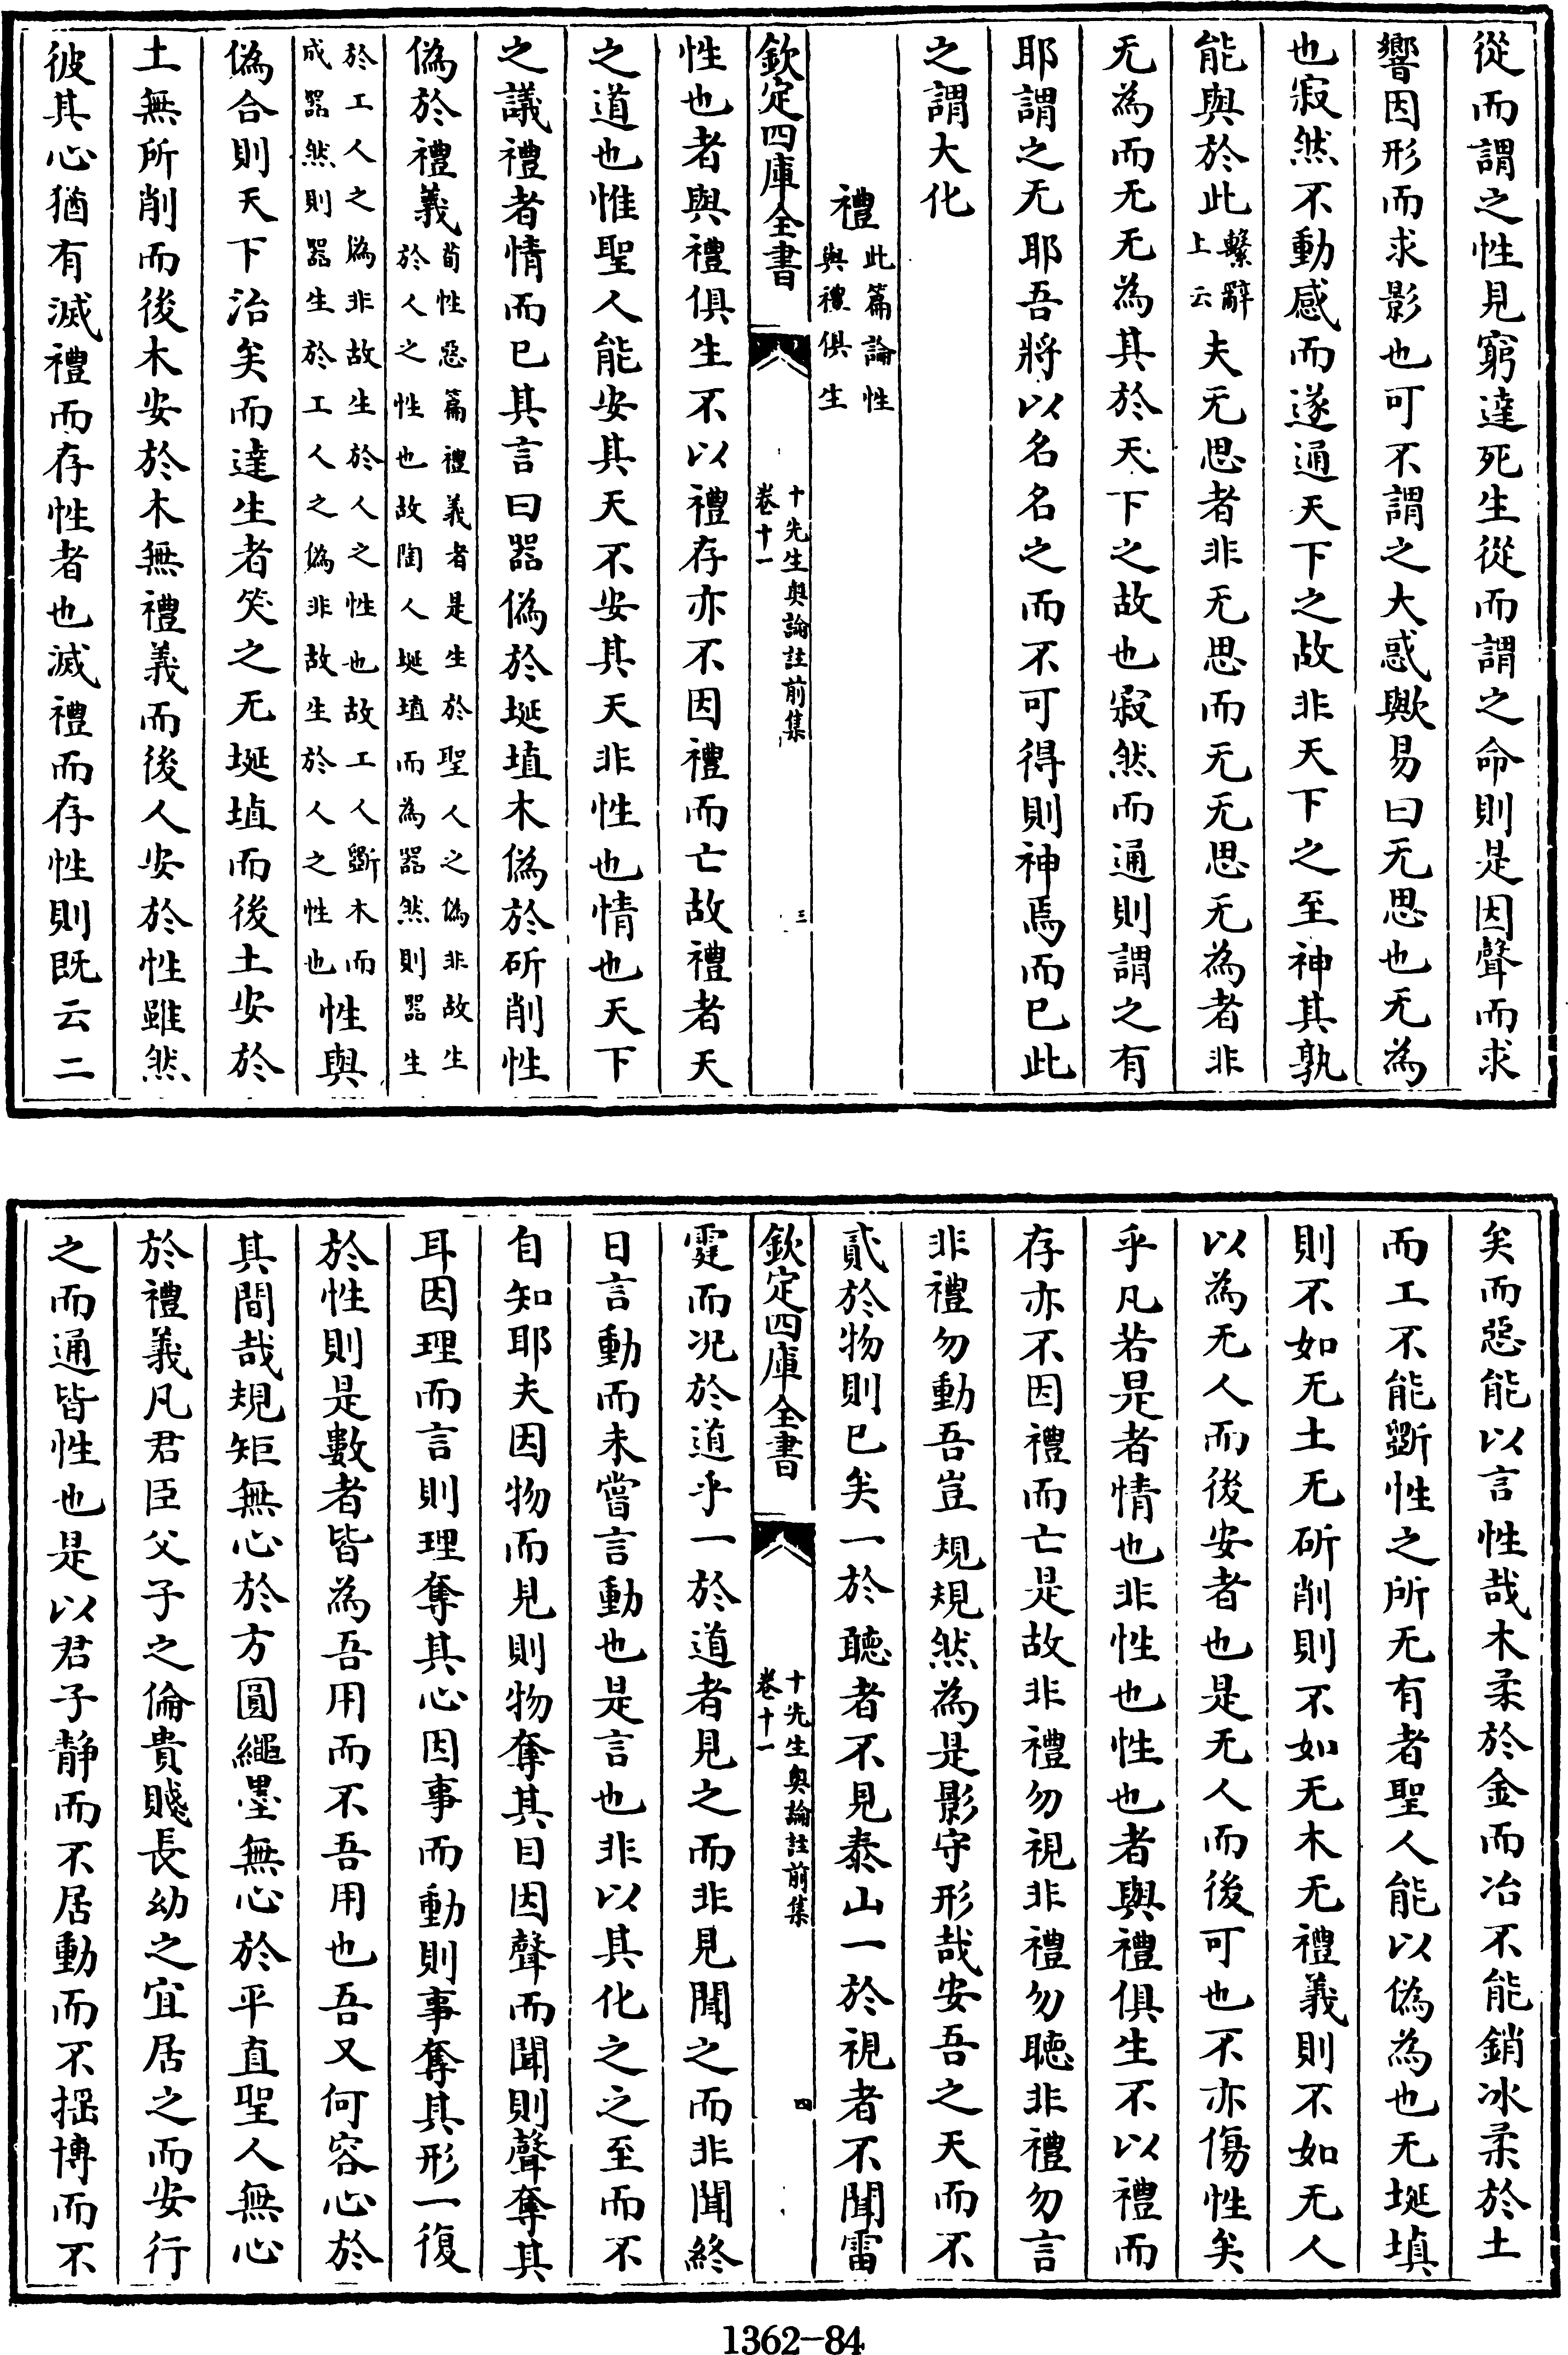 從而謂之性見窮達死生從而謂之命則是因聲而求
響因形而求影也可不謂之大惑歟易曰无思也无為
也寂然不動感而遂通天下之故非天下之至神其孰
能與於此繫辭上云夫无思者非无思而无无思无為者非
无為而无无為其於天下之故也寂然而通則謂之有
耶謂之无耶吾將以名名之而不可得則神焉而已此
之謂大化
禮此篇論性與禮俱生
欽定四庫全書
十先生奥論註前集
卷十一
三
性也者與禮俱生不以禮存亦不因禮而亡故禮者天
之道也惟聖人能安其天不安其天非性也情也天下
之議禮者情而已其言曰器偽於埏埴木偽於斫削性
偽於禮義荀性惡篇禮義者是生於聖人之偽非故生於人之性也故陶人埏埴而為器然則器生
於工人之偽非故生於人之性也故工人斵木而成器然則器生於工人之偽非故生於人之性也性與
偽合則天下治矣而達生者笑之无埏埴而後土安於
土無所削而後木安於木無禮義而後人安於性雖然
彼其心猶有滅禮而存性者也滅禮而存性則既云二
矣而惡能以言性哉木柔於金而冶不能銷冰柔於土
而工不能斵性之所无有者聖人能以偽為也无埏埴
則不如无土无斫削則不如无木无禮義則不如无人
以為无人而後安者也是无人而後可也不亦傷性矣
乎凡若是者情也非性也性也者與禮俱生不以禮而
存亦不因禮而亡是故非禮勿視非禮勿聽非禮勿言
非禮勿動吾豈規規然為是影守形哉安吾之天而不
貳於物則已矣一於聽者不見泰山一於視者不聞雷
欽定四庫全書
十先生奥論註前集
卷十一
四
霆而况於道乎一於道者見之而非見聞之而非聞終
日言動而未嘗言動也是言也非以其化之之至而不
自知耶夫因物而見則物奪其目因聲而聞則聲奪其
耳因理而言則理奪其心因事而動則事奪其形一復
於性則是數者皆為吾用而不吾用也吾又何容心於
其間哉規矩無心於方圓繩墨無心於平直聖人無心
於禮義凡君臣父子之倫貴賤長幼之宜居之而安行
之而通皆性也是以君子静而不居動而不揺博而不
1362-84